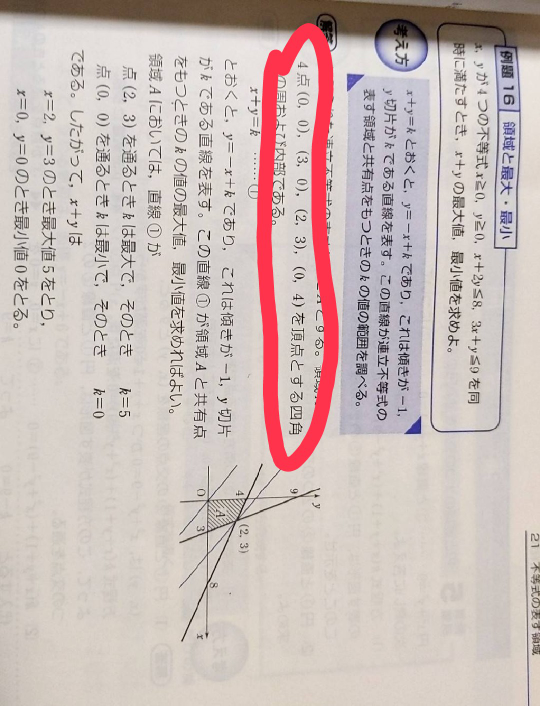 21 不等式の表す領域
例題 16 領域と最大・最小
x, y が4つの不等式 x≧0, y≧0, x+2y≦8, 3x+y≦9 を同
時に満たすとき, x+y の最大値, 最小値を求めよ。
考え方
x+y=k とおくと, y=-x+k であり, これは傾きが -1,
y 切片が k である直線を表す。この直線が連立不等式の
表す領域と共有点をもつときの k の値の範囲を調べる。
解答
とする。
4点 (0, 0), (3, 0), (2, 3), (0, 4) を頂点とする四角
の周および内部である。
x+y=k ……①
とおくと, y=-x+k であり, これは傾きが -1, y 切片
が k である直線を表す。この直線①が領域 A と共有点
をもつときの k の値の最大値, 最小値を求めればよい。
領域 A においては, 直線①が
点 (2, 3) を通るとき k は最大で, そのとき k=5
点 (0, 0) を通るとき k は最小で, そのとき k=0
である。したがって, x+y は
x=2, y=3 のとき最大値 5 をとり,
x=0, y=0 のとき最小値 0 をとる。
y
9
4
(2, 3)
A
O
3
8
x